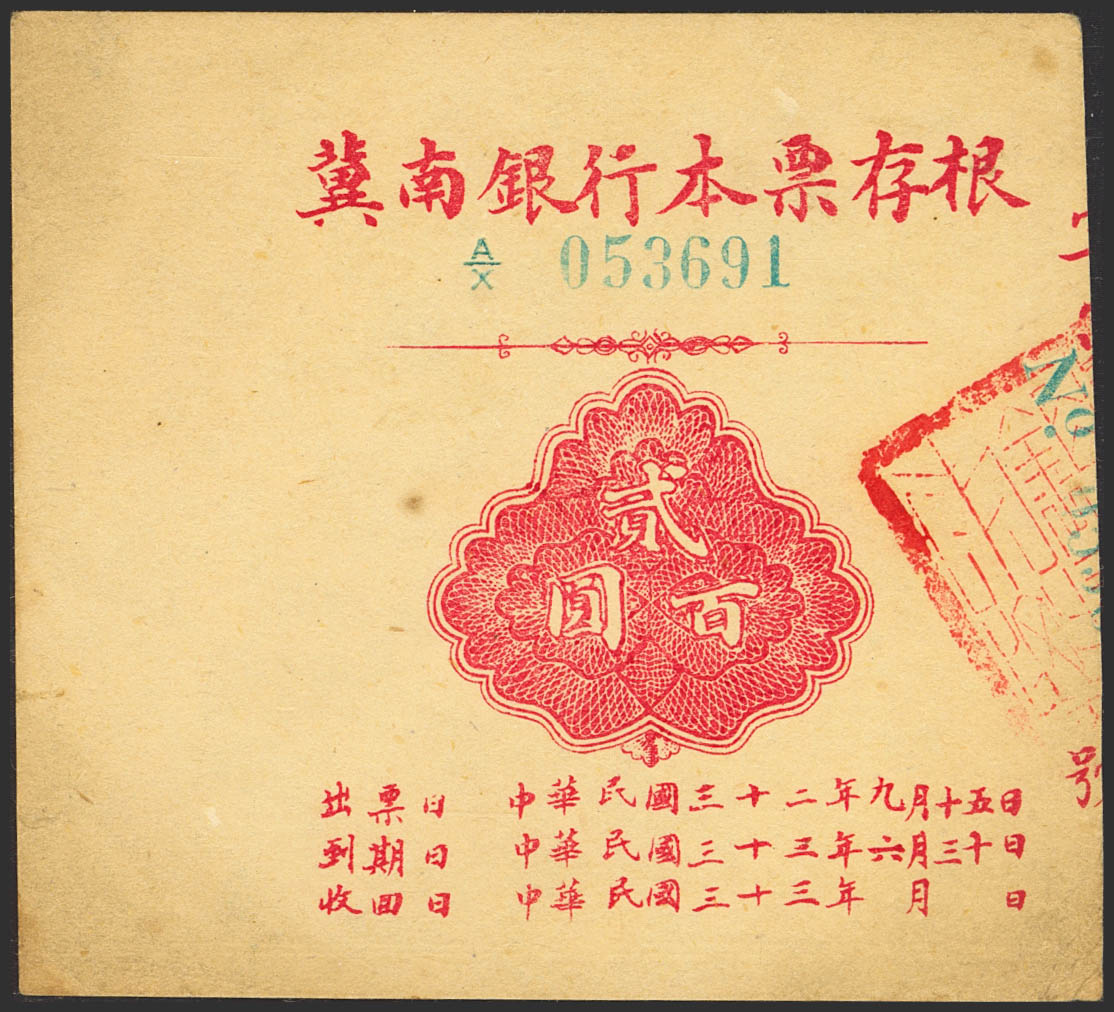 冀南銀行本票存根
A/X 053691
貳
圓百
出票日 中華民國三十二年九月十五日
到期日 中華民國三十三年六月三十日
收回日 中華民國三十三年 月 日
No.
號